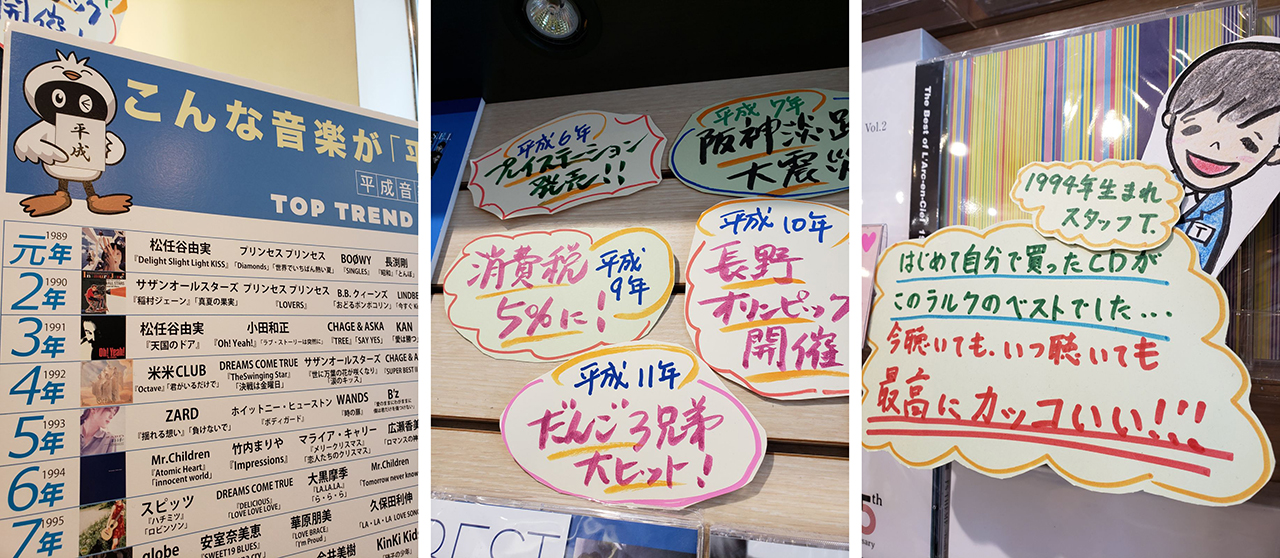 開催!
平成
こんな音楽が「平
平成音
TOP TREND
1989
元年
松任谷由実
『Delight Slight Light KISS』
プリンセス プリンセス
「Diamonds」「世界でいちばん熱い夏」
BOØWY
『SINGLES』
長渕剛
『昭和』「とんぼ
1990
2年
サザンオールスターズ
『稲村ジェーン』「真夏の果実」
プリンセス プリンセス
『LOVERS』
B.B.クィーンズ
「おどるポンポコリン」
LINDBE
「今すぐK
1991
3年
松任谷由実
『天国のドア』
小田和正
『Oh! Yeah!』「ラブ・ストーリーは突然に」
CHAGE & ASKA
『TREE』「SAY YES」
KAN
「愛は勝つ」
Oh! Yeah!
1992
4年
米米CLUB
『Octave』「君がいるだけで」
DREAMS COME TRUE
『TheSwinging Star』
「決戦は金曜日」
サザンオールスターズ
『世に万葉の花が咲くなり』
「涙のキッス」
CHAGE & A
『SUPER BEST I
1993
5年
ZARD
『揺れる想い』「負けないで」
ホイットニー・ヒューストン
『ボディガード』
WANDS
『時の扉』
B'z
1994
6年
Mr.Children
『Atomic Heart』
「innocent world」
竹内まりや
『Impressions』
マライア・キャリー
『メリークリスマス』
「恋人たちのクリスマス」
広瀬香美
「ロマンスの神
1995
7年
スピッツ
『ハチミツ』
「ロビンソン」
DREAMS COME TRUE
『DELICIOUS』
「LOVE LOVE LOVE」
大黒摩季
『LA.LA.LA』
「ら・ら・ら」
Mr.Children
「Tomorrow never know
globe
安室奈美恵
『SWEET19 BLUES』
華原朋美
『LOVE BRACE』
「I'm Proud」
久保田利伸
「LA・LA・LA LOVE SONG
今井美樹
KinKi Kid
平成6年
プレイステーション
発売!!
平成7年
阪神淡路
大震災
消費税
5%に!
平成
9年
平成10年
長野
オリンピック
開催
平成11年
だんご3兄弟
大ヒット!
Vol.2
The Best of L'Arc-en-Ciel
1994年生まれ
スタッフT.
T
はじめて自分で買ったCDが
このラルクのベストでした...
今聴いても、いつ聴いても
最高にカッコいい!!!